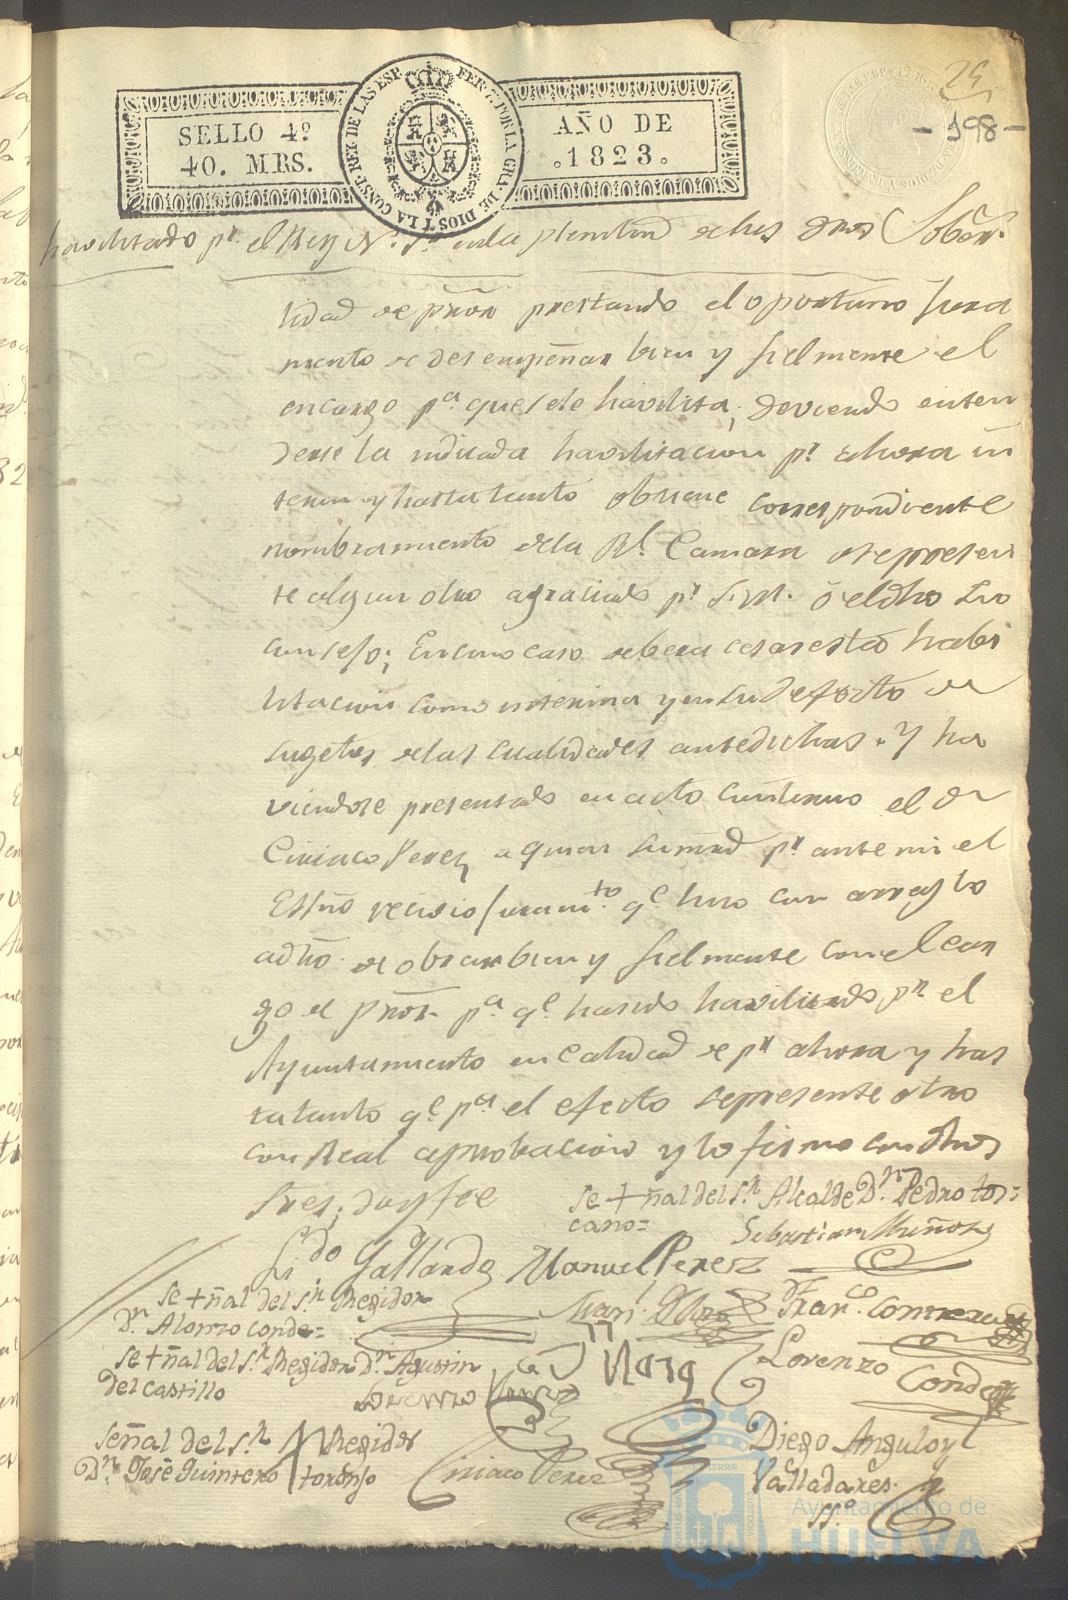 SELLO 4º
40. MRS.
FER. 7. POR LA GRA. DE DIOS Y LA CONST. REY DE LAS ESP.
AÑO DE
.1823.
25
- 198 -
havilitado pr. el Rey N. Sr. en la plenitud de sus dros Sobera.
lidad de pror prestando el oportuno Jura
mento de desempeñar bien y fielmente el
encargo pa. que se le havilita; deviendo enten
derse la indicada havilitacion pr. ahora in
terin y hasta tanto obtiene correspondiente
nombramiento de la Rl. Camara o se presen
te algun otro agraciado pr. S.M. ó el dho Su
consejo; En cuio caso debera cesar esta habi
litacion como interina y en su defecto de
sugetos de las cualidades antedichas. Y ha
viendose presentado en acto continuo el Dn
Ciriaco Perez a quien su mrd pr. ante mi el
Essno recivio juramto. qe. hizo con arreglo
a dro. de obrar bien y fielmente con el car
go de Pror. pa. qe. ha sido havilitado pr. el
Ayuntamiento en calidad de pr. ahora y has
ta tanto qe. pa. el efecto se presente otro
con Real aprobacion y lo firmo con dhos
Sres; doy fee
Se + ñal del Sr. Alcalde Dn. Pedro tos=
cano=
Sebastian Muñoz
Ldo Gallardo
Manuel Perez
Se + ñal del Sr. Regidor
Dn. Alonzo conde=
Franco. Contreras
Se + ñal del Sr. Regidor Dn. Agustin
del castillo
Lorenzo
Conde
Señal del Sr. Regidor
Dn. Josè Quintero toronjo
Ciriaco Perez
Diego Angulo y
Valladares.
SSo.
Ayuntamiento de
HUELVA